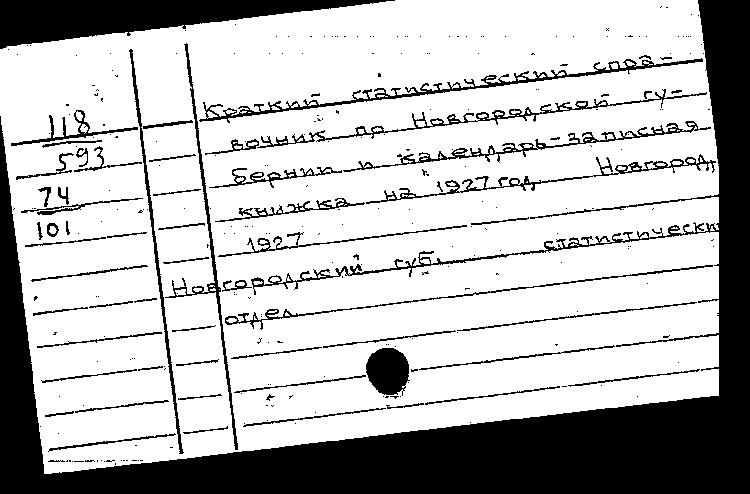 118
593
74
101
Краткий статистический спра-
вочник по Новгородской гу-
бернии и календарь-записная
книжка на 1927 год. Новгород,
1927
Новгородский губ. статистически
отдел